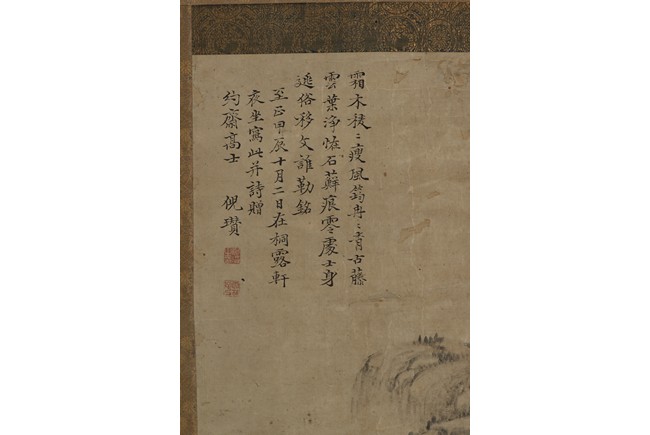 霜木稜〻瘦風筠冉〻青古藤
雲葉淨恠石蘚痕零處士身
逃俗移文誰勒銘
至正甲辰十月二日在桐露軒
夜坐寫此并詩贈
約齋高士 倪瓚